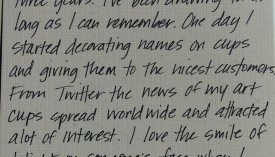 three years. I've been drawing for as
long as I can remember. One day I
started decorating names on cups
and giving them to the nicest customers.
From Twitter the news of my art
cups spread worldwide and attracted
alot of interest. I love the smile of
face when I